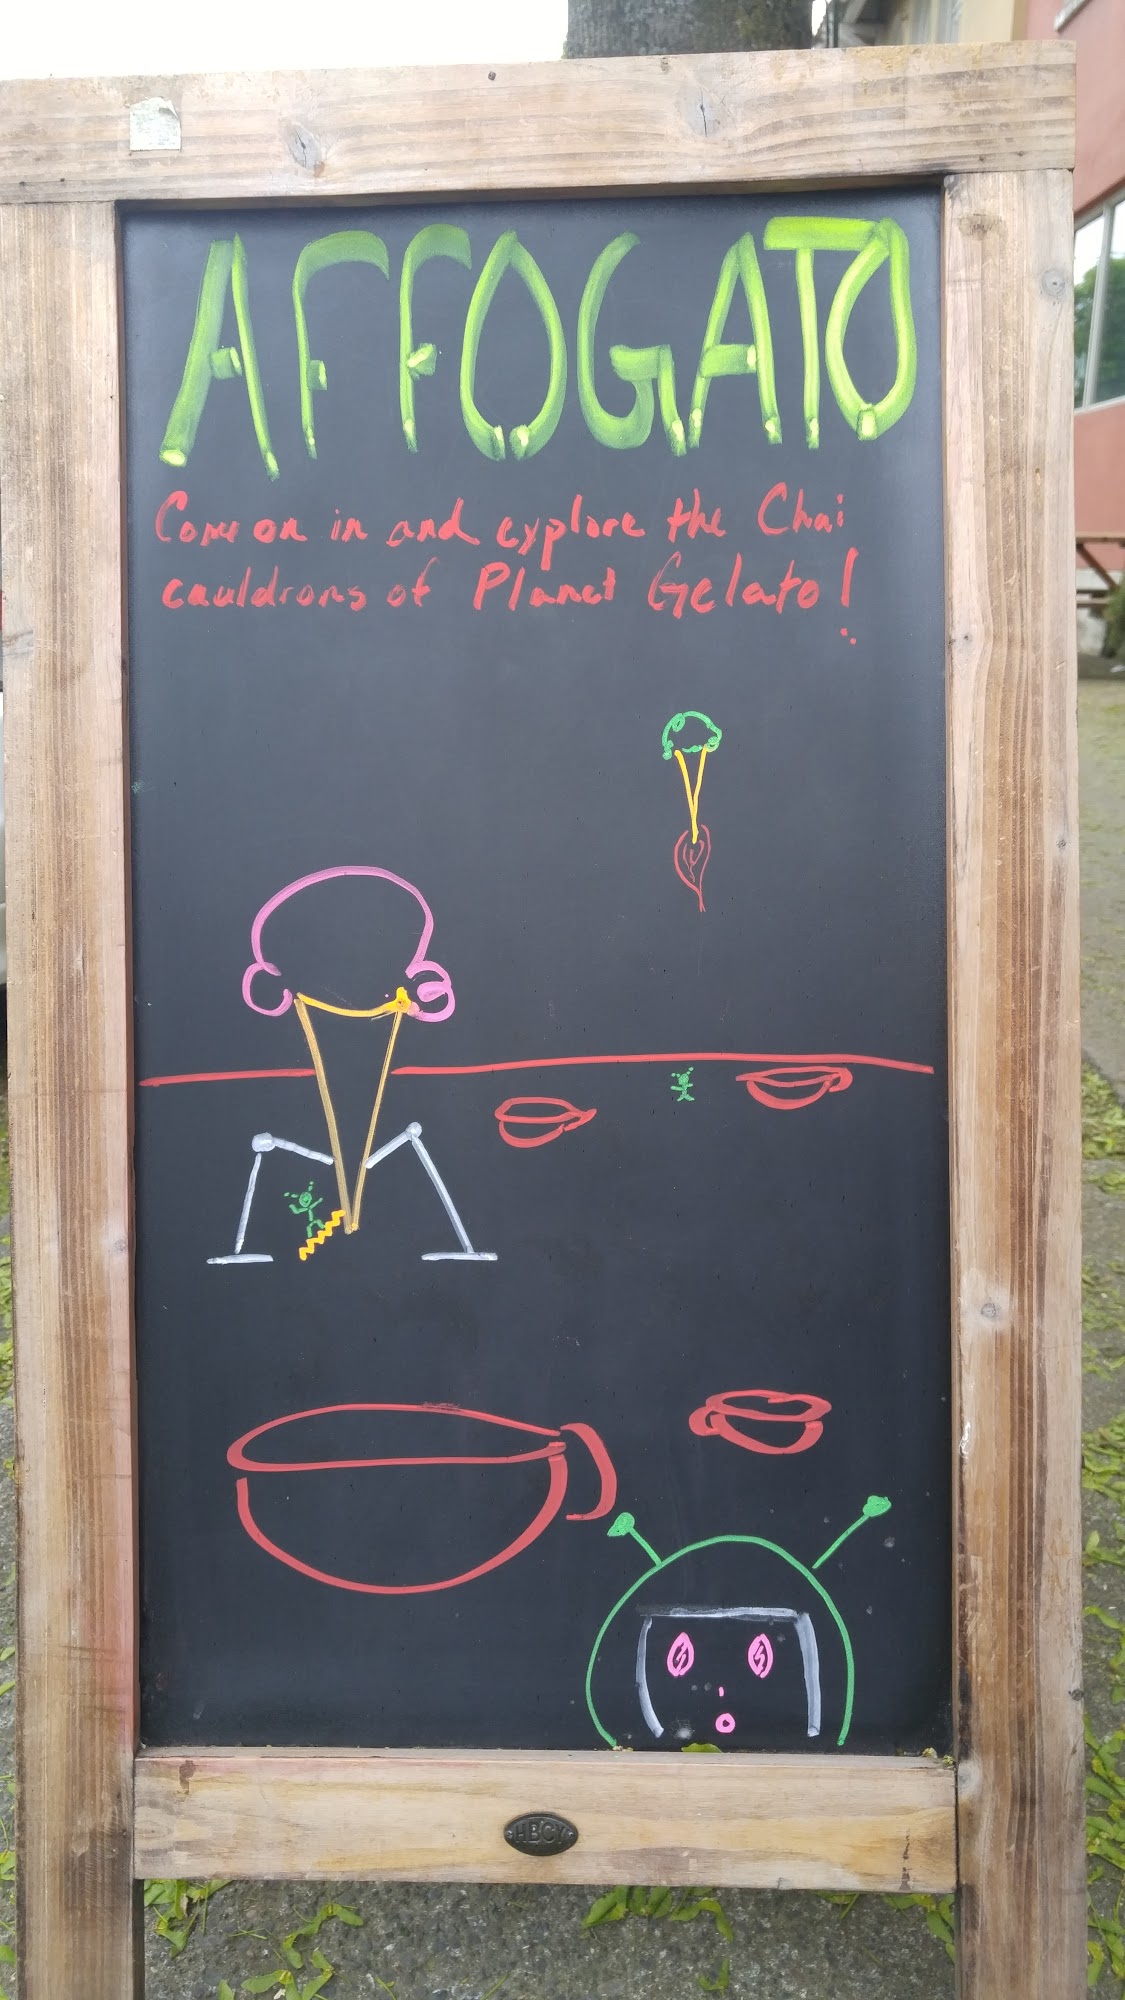 AFFOGATO
Come on in and explore the Chai
cauldrons of Planet Gelato!
HBCY